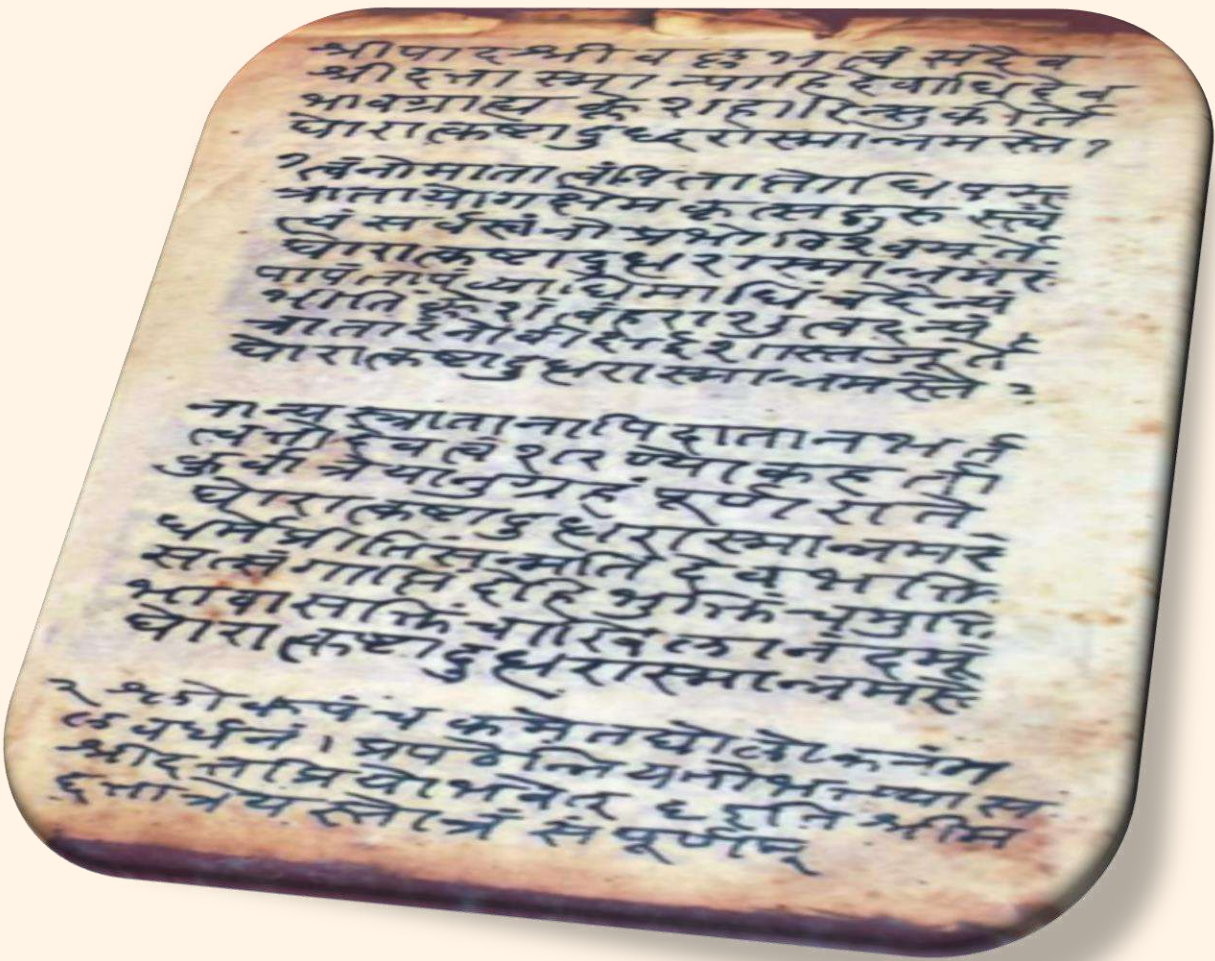 श्रीपादश्रीवल्लभत्वं सदैव
श्रीदत्तास्मान्पाहि देवाधिदेव
भावग्राह्य क्लेशहारिन्सुकीर्ते
घोरात्कष्टादुध्दरास्मान्नमस्ते १
त्वंनोमाता त्वंपिता त्तोधिपस्त्व
त्रातायोगक्षेमकृत्सद्गुरुस्त्वं
त्वं सर्वस्वंनोप्रभोविश्वमूर्ते
घोरात्कष्टादुध्धरास्मान्नमस्
पापंतापंव्याधिमाधिंचदैन्यं
भीतिं क्लेशंत्वंहराशु त्वदन्यं
त्रातारंनोवीक्षईशास्तजूर्ते
घोरात्कष्टादुध्धरास्मान्नमस्ते
नान्यस्त्रातानापिदातानभर्ता
त्वत्तोदेवत्वंशरण्योकहर्ता
कुर्वात्रेयानुग्रहंपूर्णराते
घोरात्कष्टादुध्धरास्मान्नमस्
धर्मेप्रीतिंसन्मतिंदेवभक्तिं
सत्संगाप्तिंदेहिभुक्तिंचमुक्तिं
भावासक्तिंचाखिलानंदमूर्
घोरात्कष्टादुध्धरास्मान्नमस्
श्लोकपंचकमेतद्योलोकमंग
लवर्धनं। प्रपठेन्नियतोभक्त्यास
श्रीदत्तप्रियोभवेत् इति श्रीम
द्दत्तात्रेयस्तोत्रं संपूर्णम्